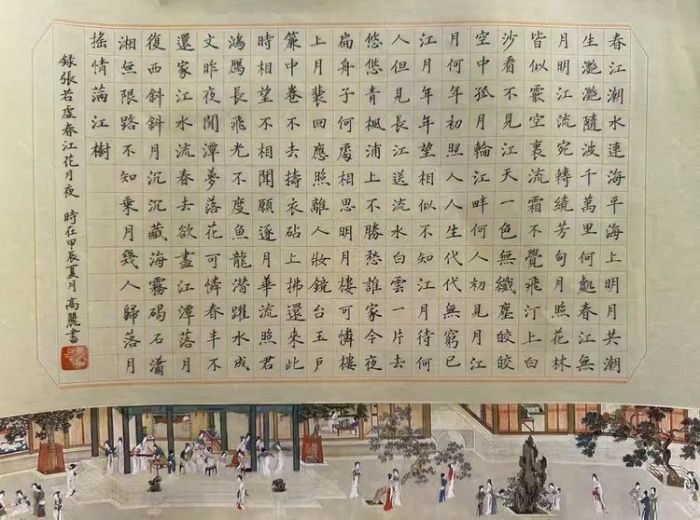 春江潮水連海平海上明月共潮
生灔灔隨波千萬里何處春江無
月明江流宛轉繞芳甸月照花林
皆似霰空裏流霜不覺飛汀上白
沙看不見江天一色無纖塵皎皎
空中孤月輪江畔何人初見月江
月何年初照人人生代代無窮已
江月年年望相似不知江月待何
人但見長江送流水白雲一片去
悠悠青楓浦上不勝愁誰家今夜
扁舟子何處相思明月樓可憐樓
上月裴回應照離人妝鏡台玉戶
簾中卷不去擣衣砧上拂還來此
時相望不相聞願逐月華流照君
鴻鴈長飛光不度魚龍潛躍水成
文昨夜閒潭夢落花可憐春半不
還家江水流春去欲盡江潭落月
復西斜斜月沉沉藏海霧碣石瀟
湘無限路不知乘月幾人歸落月
搖情滿江樹
錄張若虛春江花月夜 時在甲辰夏月 高麗書